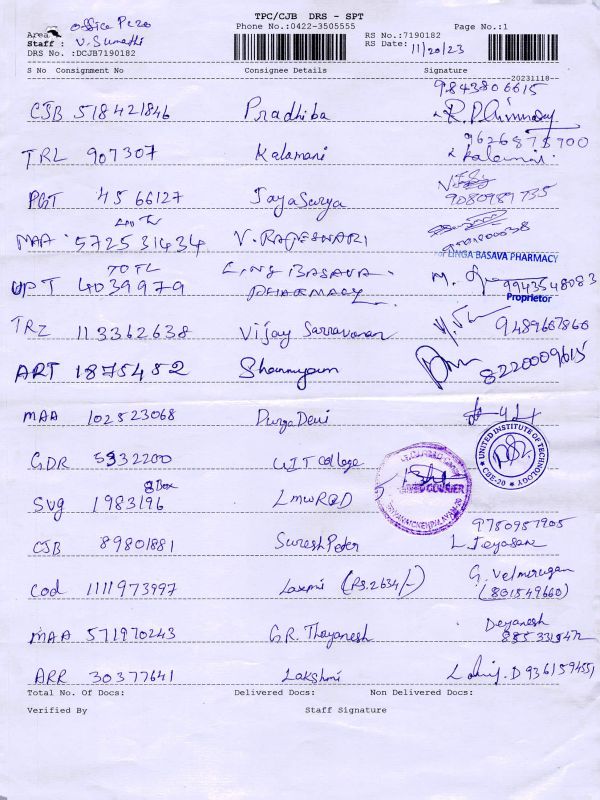 TPC/CJB DRS - SPT
Phone No.:0422-3505555 Page No.:1
Area office P220
Staff : V. Sumathi
DRS No. :DCJB7190182
RS No.:7190182
RS Date: 11/20/23
S No Consignment No Consignee Details Signature
20231118
9843806615
CJB 518421846 Pradhiba
9626875700
TRL 907307 Kalamani Kalamani
PGT 4566127 Jayasurya 9080989735
MAA 572531434 V. RAJESWARI
TOTL
UPT 4039979 LINGBASAVA PHARMACY
For LINGA BASAVA PHARMACY
M. 9943548083
Proprietor
TRZ 113362638 Vijay Sarravanan 9489667866
ART 1875452 Shanmugam 8220009615
MAA 102523068 Durga Devi
GDR 5332200 UIT College
UNITED INSTITUTE OF TECHNOLOGY
CBE-20
8 Box
SVG 1983196 LMWR&D
9750957905
CJB 89801881 Suresh Peter
Cod 1111973997 Laxmi (RS.2634/-) G. Velmurugan
(801549660)
MAA 571970243 G.R. Thayanesh Deyanesh
ARR 30377641 Lakshmi
Total No. Of Docs: Delivered Docs: Non Delivered Docs:
Verified By Staff Signature